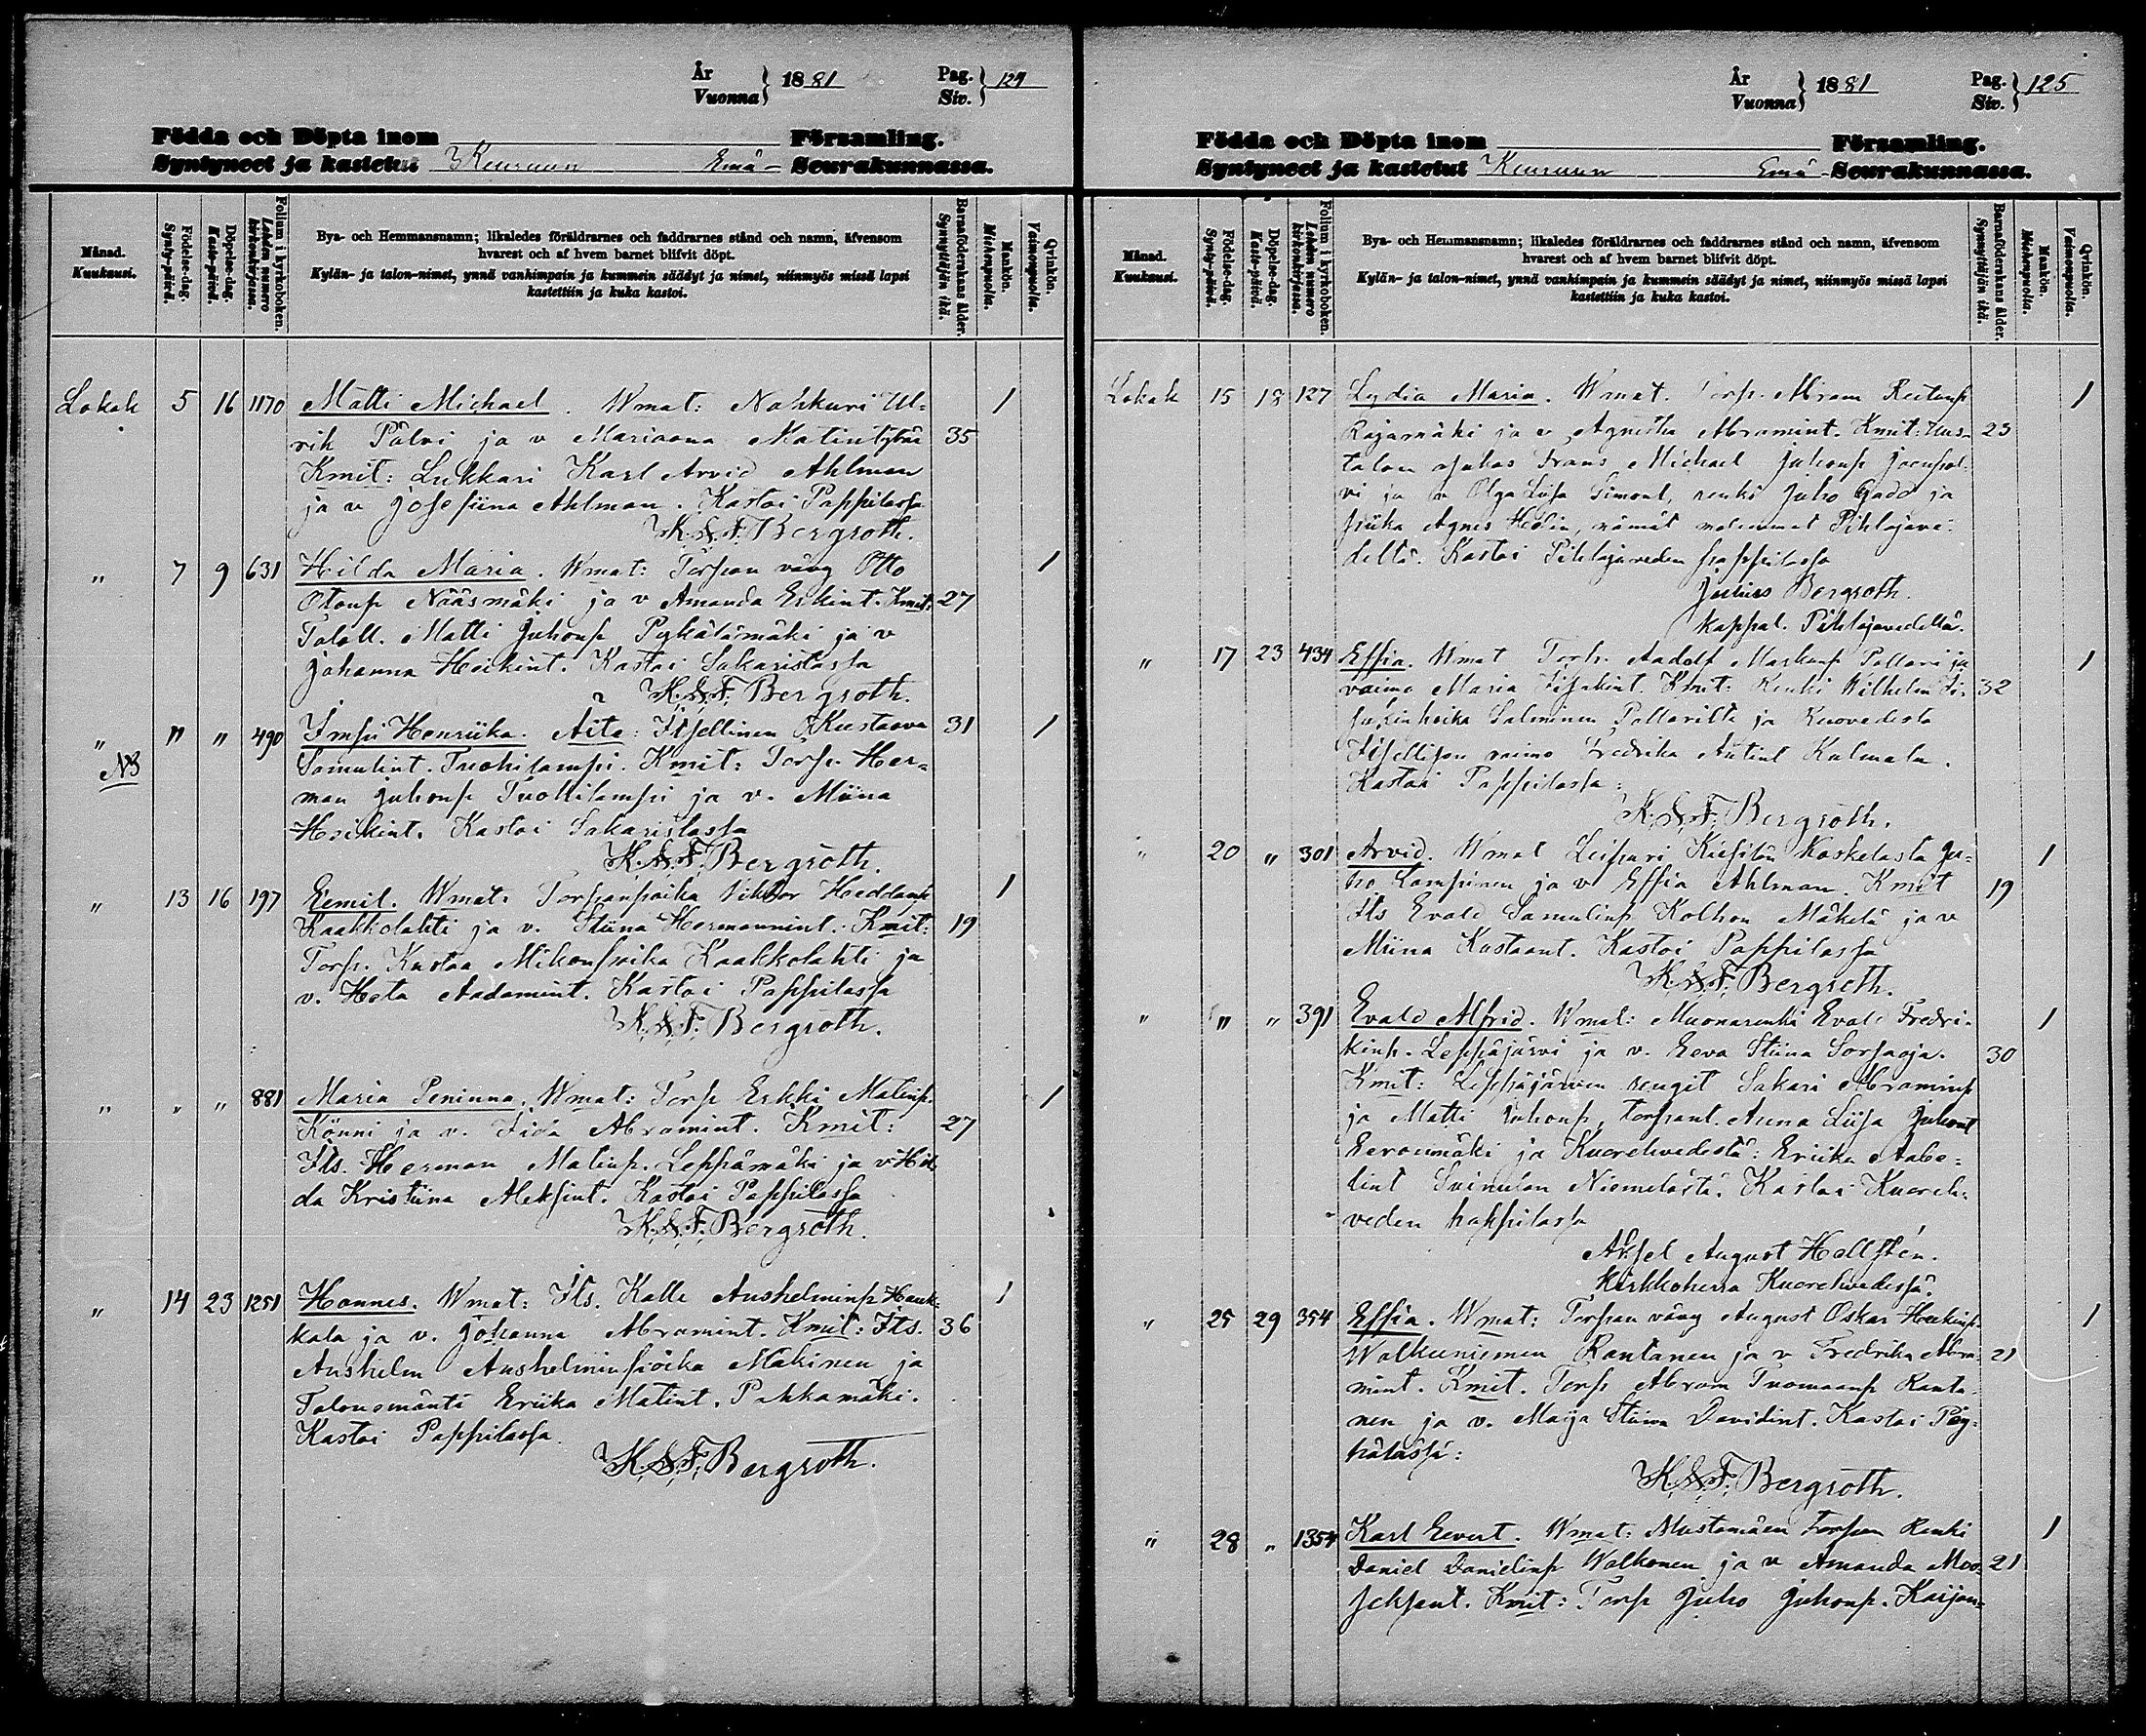 År
Vuonna } 1881 Pag.
Siv. } 124
Födda och Döpta inom Församling.
Syntyneet ja kastetut Keuruun Emä- Seurakunnassa.
Månad.
Kuukausi.
Födelse-dag.
Synty-päivä.
Döpelse-dag.
Kaste-päivä.
Folium i kyrkoboken.
Lehden numero
kirkonkirjassa.
Bya- och Hemmansnamn; likaledes föräldrarnes och faddrarnes stånd och namn, äfvensom
hvarest och af hvem barnet blifvit döpt.
Kylän- ja talon-nimet, ynnä vanhimpain ja kummein säädyt ja nimet, niinmyös missä lapsi
kastettiin ja kuka kastoi.
Barnaföderskans ålder.
Synnyttäjän ikä.
Mankön.
Miehenpuolia.
Qvinkön.
Vaimonpuolia.
Lokak 5 16 1170 Matti Michael. Wmat: Nahkuri Ul- 1
rik Pälvi ja v Mariaana Matintytär 35
Kmit: Lukkari Karl Arvid Ahlman
ja v Josefiina Ahlman. Kastoi Pappilassa
K. S. F. Bergroth.
" 7 9 631 Hilda Maria. Wmat: Torpan vävy Otto 1
Otonp Nääsmäki ja v Amanda Erkint. Kmit: 27
Taloll. Matti Juhonp Pykälämäki ja v
Johanna Heikint. Kastoi Sakaristassa
K. S. F. Bergroth.
" " " 490 Impi Henriika. Äite: Itsellinen Kustaava 31 1
NB Samulint. Tuohilampi. Kmit: Torp. Her-
man Juhonp Tuohilampi ja v. Miina
Heikint. Kastoi Sakaristassa
K. S. F. Bergroth.
" 13 16 197 Eemil. Wmat. Torpanpoika Viktor 1
Kaakkolahti ja v. Stiina Hermannint. Kmit: 19
Torp. Kustaa Mikonpoika Kaakkolahti ja
v. Heta Aadamint. Kastoi Pappilassa
K. S. F. Bergroth.
" " " 881 Maria Peninna. Wmat: Torp Erkki Matinp. 1
Könni ja v. Iida Abramint. Kmit: 27
Its. Herman Matinp. Leppämäki ja v Hil-
da Kristiina Aleksint. Kastoi Pappilassa
K. S. F. Bergroth.
" 14 23 1251 Hannes. Wmat: Its. Kalle Anshelminp Hauk- 1
kala ja v. Johanna Abramint. Kmit: Its. 36
Anshelm Anshelminpoika Mäkinen ja
Talonemäntä Eriika Matint. Pohkamäki.
Kastoi Pappilassa.
K. S. F. Bergroth.
År
Vuonna } 1881 Pag.
Siv. } 125
Födda och Döpta inom Församling.
Syntyneet ja kastetut Keuruun Emä- Seurakunnassa.
Månad.
Kuukausi.
Födelse-dag.
Synty-päivä.
Döpelse-dag.
Kaste-päivä.
Folium i kyrkoboken.
Lehden numero
kirkonkirjassa.
Bya- och Hemmansnamn; likaledes föräldrarnes och faddrarnes stånd och namn, äfvensom
hvarest och af hvem barnet blifvit döpt.
Kylän- ja talon-nimet, ynnä vanhimpain ja kummein säädyt ja nimet, niinmyös missä lapsi
kastettiin ja kuka kastoi.
Barnaföderskans ålder.
Synnyttäjän ikä.
Mankön.
Miehenpuolia.
Qvinkön.
Vaimonpuolia.
Lokak 15 18 127 Lydia Maria. Wmat. Torp. Abram 1
Rajamäki ja v Agnetha Abramint. Kmit: Uus- 23
talon Frans Michael Juhonp
ja v Olga Liisa Simont, renki Juho Gadd ja
piika Agnes Hedin, nämät molemmat Pihlajave-
deltä. Kastoi Pihlajaveden pappilassa
Julius Bergroth.
kappal. Pihlajavedellä.
" 17 23 434 Effia. Wmat Torp. Aadolf Markunp Pollari ja 1
vaimo Maria Iisakint. Kmit: Renki Wilhelm Ii- 32
sakinpoika Salminen Pollarilta ja Kuovedesta
Itsellisen vaimo Fredrika Antint Kulmala.
Kastoi Pappilassa:
K. S. F. Bergroth.
" 20 " 301 Arvid. Wmat Leipuri Kiepilän Koskelasta Ju- 1
ho Lampinen ja v Effia Ahlman. Kmit 19
Its Evald Samulinp Kolhon Mäkelä ja v
Miina Kustaant. Kastoi Pappilassa
K. S. F. Bergroth.
" " " 391 Evald Alfrid. Wmat: Muonarenki Evald Fredri- 1
kinp. Leppäjärvi ja v. Eeva Stiina Sorpaoja. 30
Kmit: Leppäjärven rengit Sakari Abraminp
ja Matti Juhonp, torpant. Anna Liisa Juhont
Eeronmäki ja Kuorehvedestä: Eriika Aabe-
lint Suinulan Niemelästä. Kastoi Kuoreh-
veden pappilassa
Aksel August Hellstén.
Kirkkoherra Kuorehvedessä.
" 25 29 354 Effia. Wmat: Torpan vävy August Oskar Heikinp. 1
Walkeeniemen Rantanen ja v Fredrika Abra- 21
mint. Kmit. Torp Abram Tuomaanp Ranta-
nen ja v. Maija Stiina Davidint. Kastoi Pöy-
hölässä:
K. S. F. Bergroth.
" 28 " 1354 Karl Eevert. Wmat: Mustamäen Torpan Renki 1
Daniel Danielinp Walkonen ja v Amanda Moo- 21
seksent. Kmit: Torp Juho Juhonp. Kaijan-